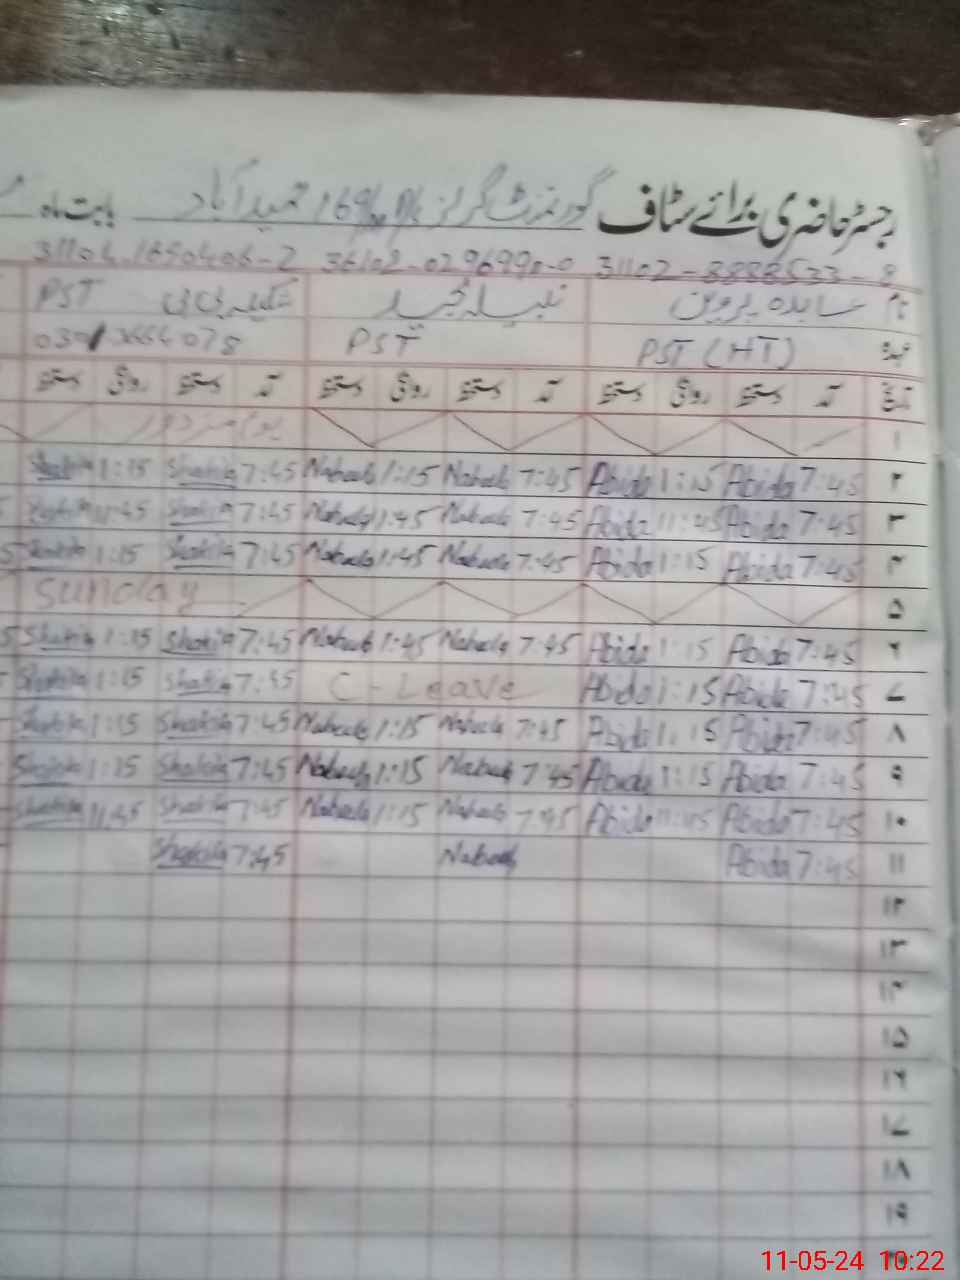 رجسٹر حاضری برائے سٹاف گورنمنٹ گرلز 169 حمیدآباد بابت ماہ
31104-1690406-2 31102-8888533-8
نام عابدہ پروین نبیلہ مجید شکیلہ بی بی PST
عہدہ PST (HT) PST
تاریخ آمد دستخط روانگی دستخط آمد دستخط روانگی دستخط آمد دستخط روانگی دستخط
۱ یوم مزدور
۲ 7:45 Abida 1:15 Abida 7:45 Nabeela 1:15 Nabeela 7:45 Shakila 1:15 Shakila
۳ 7:45 Abida 11:45 Abida 7:45 Nabeela 11:45 Nabeela 7:45 Shakila 11:45 Shakila
۴ 7:45 Abida 1:15 Abida 7:45 Nabeela 1:45 Nabeela 7:45 Shakila 1:15 Shakila
۵ Sunday
۶ 7:45 Abida 1:15 Abida 7:45 Nabeela 1:45 Nabeela 7:45 Shakila 1:15 Shakila
۷ 7:45 Abida 1:15 Abida C-Leave 7:45 Shakila 1:15 Shakila
۸ 7:45 Abida 1:15 Abida 7:45 Nabeela 1:15 Nabeela 7:45 Shakila 1:15 Shakila
۹ 7:45 Abida 1:15 Abida 7:45 Nabeela 1:15 Nabeela 7:45 Shakila 1:15 Shakila
۱۰ 7:45 Abida 11:45 Abida 7:45 Nabeela 1:15 Nabeela 7:45 Shakila 11:45 Shakila
۱۱ 7:45 Abida Nabeela 7:45 Shakila
۱۲
۱۳
۱۴
۱۵
۱۶
۱۷
۱۸
۱۹
11-05-24 10:22